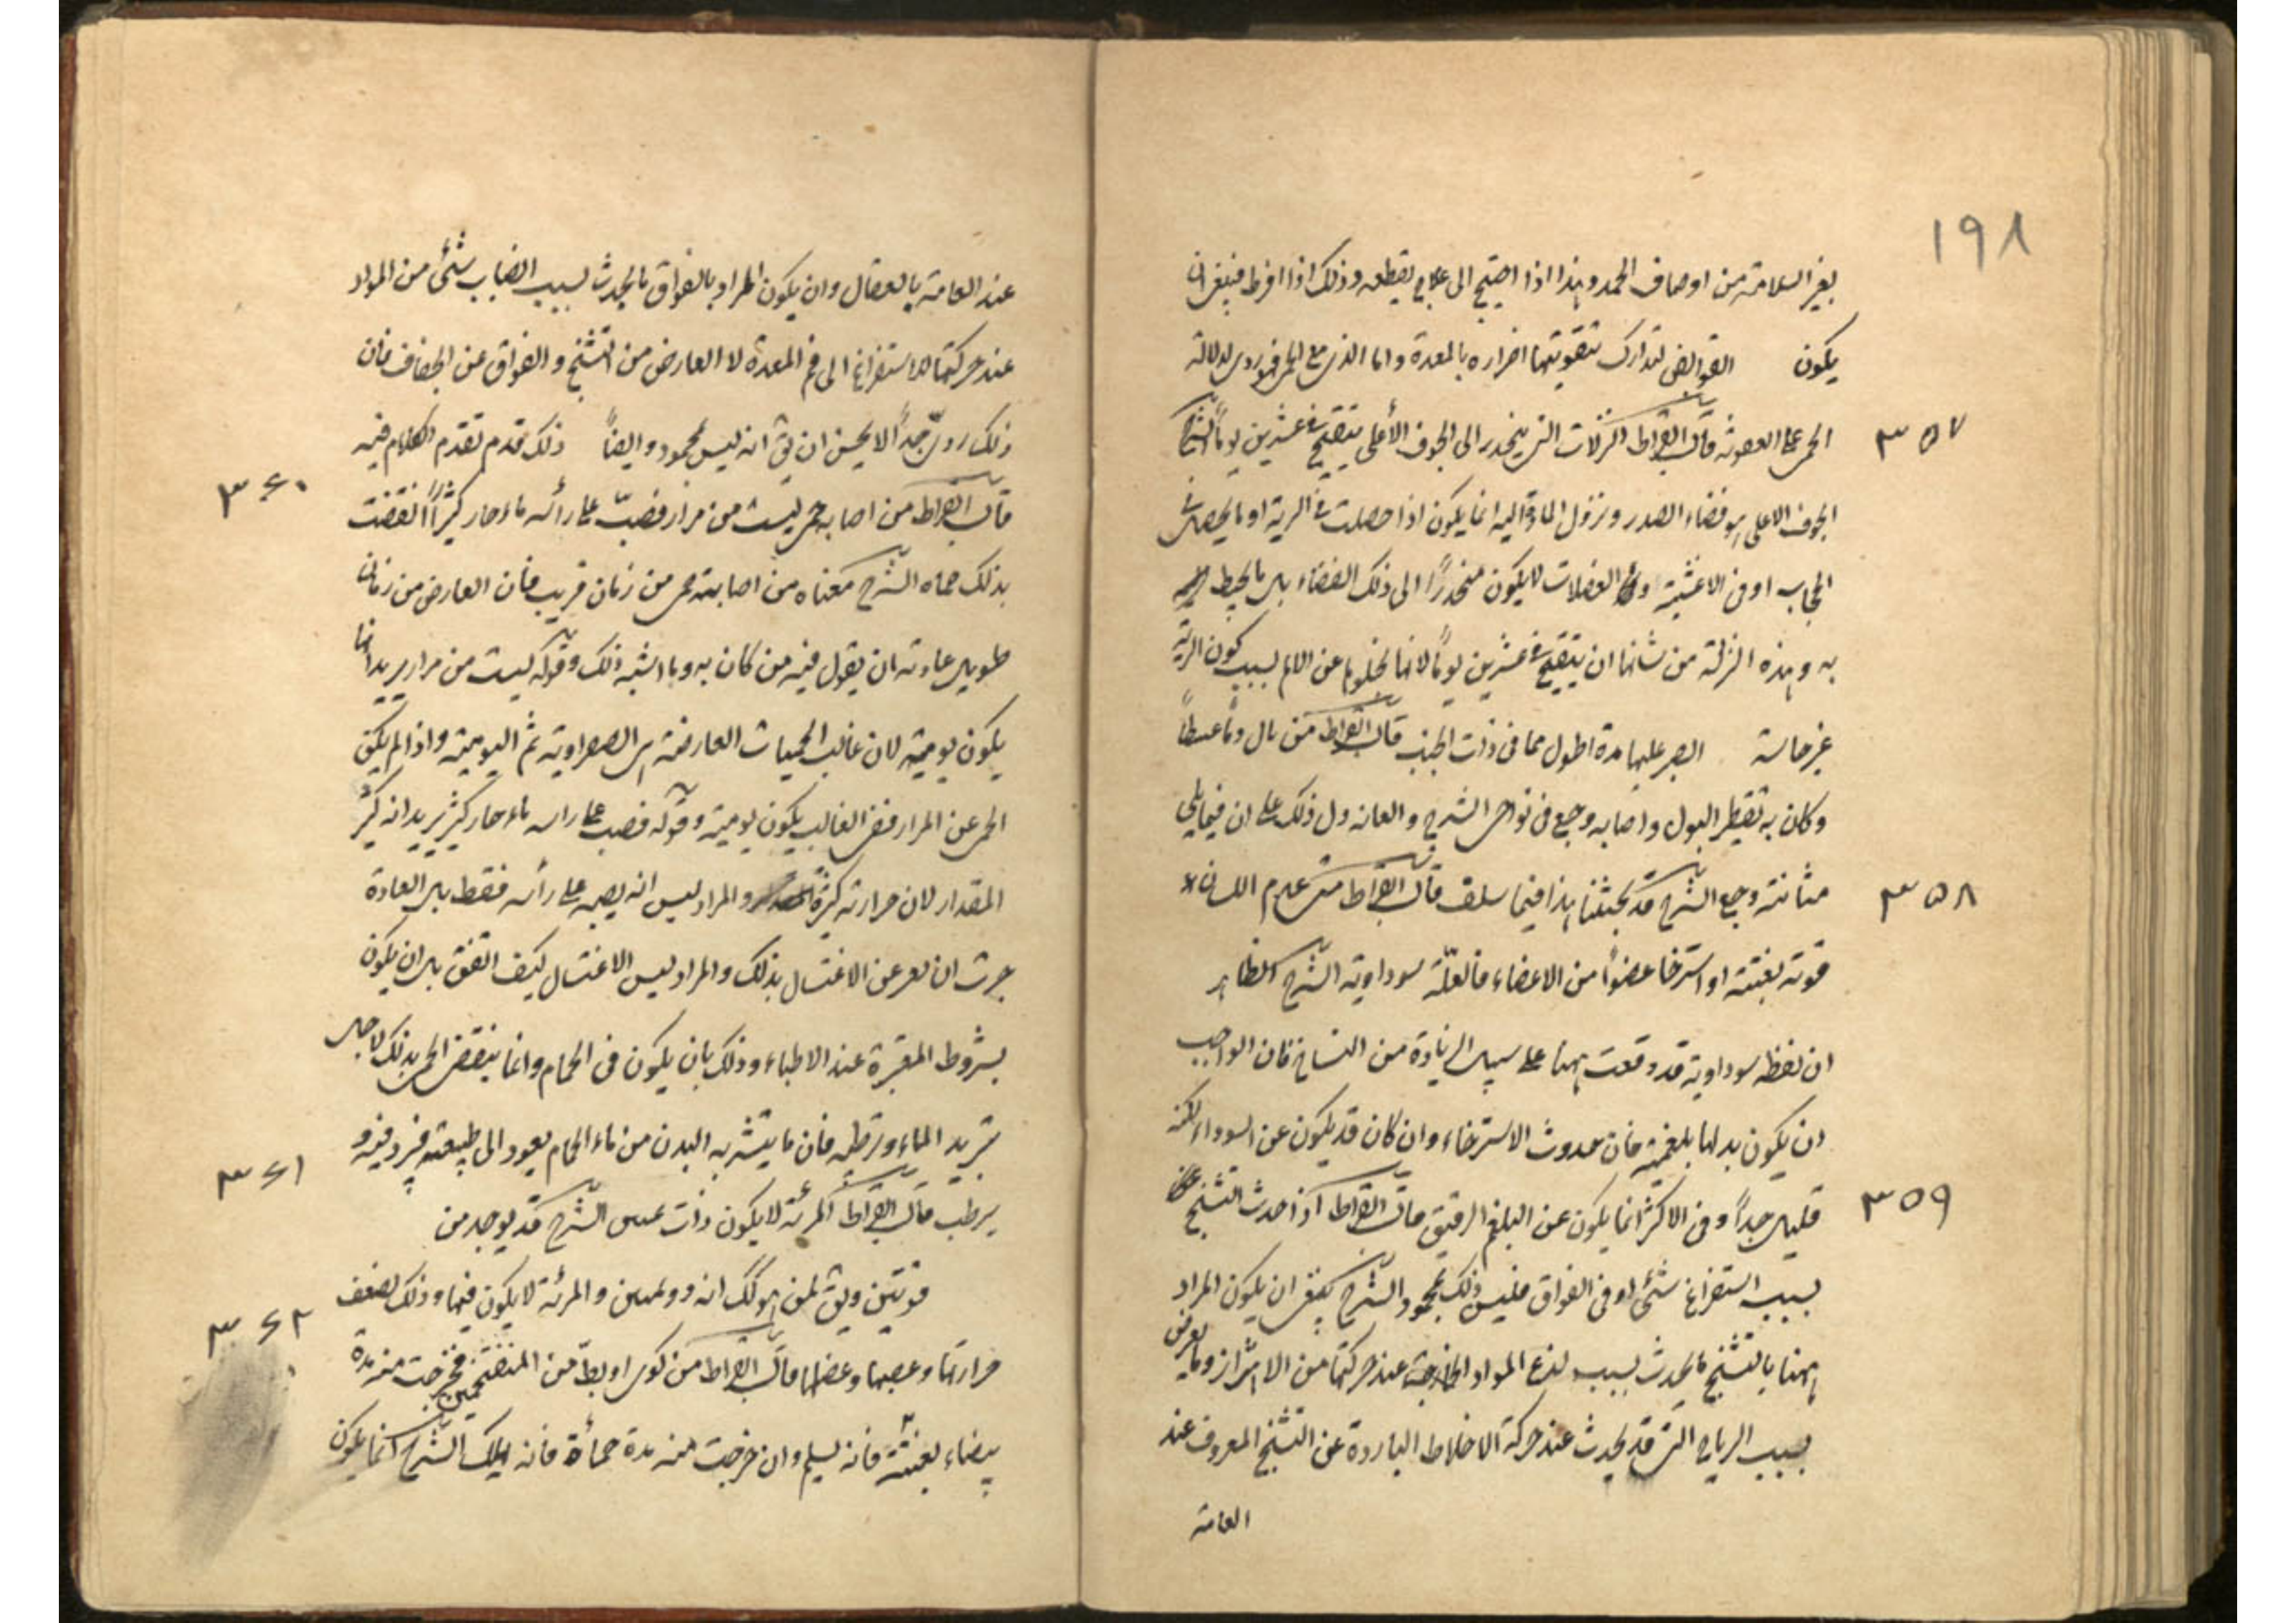 ١٩٨
بغير السلامة من اوصاف الحمد وهذا اذا احتيج الى علاج يقطعه وذلك اذا افرط فينبغى ان
يكون القوابض لتدارك بتقويتها اضراره بالمعدة واما الذى مع الحمى فهو ردى لدلالة
الحمى على العفونة قال ابقراط النزلات التى ينحدر الى الجوف الأعلى يتقيح فى عشرين يوماً الشرح
٣٥٧
الجوف الاعلى هو فضاء الصدر ونزول المادة اليه انما يكون اذا حصلت فى الرية او ما يحصل فى
الحجاب او فى الاغشية والعضلات لا يكون منحدراً الى ذلك الفضاء بل ما يحيط
به وهذه النزلة من شانها ان يتقيح فى عشرين يوماً لانها لخلوها عن الالم بسبب كون الرية
غير حاسة الصبر عليها مدة اطول مما فى ذات الجنب قال ابقراط من بال دماً عبيطاً
وكان به تقطير البول واصابه وجع فى نواحى الشرج والعانة دل ذلك على ان فيما يلى
مثانته وجع الشرح قد بحثنا هذا فيما سلف قال ابقراط متى عدم اللسان
٣٥٨
قوته بغتة او استرخا عضواً من الاعضاء فالعلّة سوداوية الشرح الظاهر
ان لفظه سوداوية قد وقعت ههنا على سبيل الزيادة من النساخ فان الواجب
ان يكون بدلها بلغمية فان حدوث الاسترخاء وان كان قد يكون عن السوداء لكنه
قليل جداً وفى الاكثر انما يكون عن البلغم الرقيق قال ابقراط اذا حدث التشنج عن
٣٥٩
بسبب استفراغ شئى او فى الفواق فليس ذلك بمحمود الشرح يعنى ان يكون المراد
ههنا بالتشنج ما يحدث بسبب لذع المواد الخارجة عند حركتها من الامتزاز وما يعرض
بسبب الرياح التى قد يحدث عند حركة الاخلاط الباردة عن التشنج المعروف عند
العامة
عند العامة بالعقال وان يكون المراد بالفواق ما يحدث بسبب انصباب شئى من المواد
عند حركتها للاستفراغ الى فم المعدة لا العارض من التشنج والفواق عن الجفاف فان
ذلك ردىّ جداً لا يحسن ان يق انه ليس بمحمود وايضاً ذلك قدم تقدم الكلام فيه
قال ابقراط من اصابه حمى ليست من مرار فصبّ على رأسه ماء حار كثيراً انقضت
٣٦٠
بذلك حماه الشرح معناه من اصابته حمى من زمان قريب فان العارض من زمان
طويل عادته ان يقول فيه من كان به وما اشبه ذلك وقوله ليست من مرار يريد انما
يكون يومية لان غالب الحميات العارضة هى الصفراوية ثم اليومية واذا لم يكن
الحمى عن المرار ففى الغالب يكون يومية وقوله فصب على راسه ماء حار كثير يريد انه كثير
المقدار لان حرارته كثيرة والمراد ليس انه يصبه على رأسه فقط بل العادة
جرت ان يعبر عن الاغتسال بذلك والمراد ليس الاغتسال كيف اتفق بل ان يكون
بشروط المعتبرة عند الاطباء وذلك بان يكون فى الحمام وانما ينقضى الحمى بذلك لاجل
تبريد الماء وترطيبه فان ما يتشربه البدن من ماء الحمام يعود الى طبيعته فيبرد فيه و
يرطب قال ابقراط المرئة لا يكون ذات يمينين الشرح قد يوجد من
٣٦١
قوتين ويق لمن هو كك انه ذو يمينين والمرئة لا يكون فيها وذلك لضعف
حرارتها وعصبها وعضلها قال ابقراط من كوى او بطّ من المتقيحين فخرجت منه مدة
٣٦٢
بيضاء بغتة فانه يسلم وان خرجت منه مدة حمأة فانه يهلك الشرح انما يكون